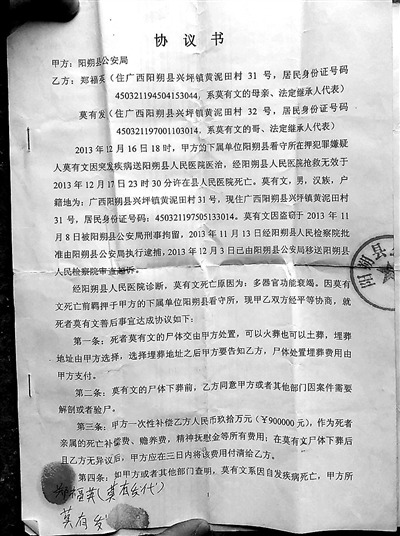 协 议 书
甲方：阳朔县公安局
乙方：郑福英（住广西阳朔县兴坪镇黄泥田村 31 号，居民身份证号码
450321194504153044，系莫有文的母亲、法定继承人代表）
莫有发（住广西阳朔县兴坪镇黄泥田村 32 号，居民身份证号码
450321197001103014，系莫有文的哥、法定继承人代表）
2013 年 12 月 16 日 18 时，甲方的下属单位阳朔县看守所在押犯罪嫌疑
人莫有文因突发疾病送阳朔县人民医院医治，经阳朔县人民医院抢救无效于
2013 年 12 月 17 日 23 时 30 分许在县人民医院死亡。莫有文，男，汉族，户
籍地为：广西阳朔县兴坪镇黄泥田村31 号，现住广西阳朔县兴坪镇黄泥田村
31 号，居民身份证号：45032119750513301４。莫有文因盗窃于 2013 年 11
月 8 日被阳朔县公安局刑事拘留，2013 年 11 月 13 日经阳朔县人民检察院批
准由阳朔县公安局执行逮捕，2013 年 12 月 3 日已由阳朔县公安局移送阳朔县
人民检察院审查起诉。
经阳朔县人民医院诊断，莫有文死亡原因为：多器官功能衰竭。因莫有
文死亡前羁押于甲方的下属单位阳朔县看守所，现甲乙双方经平等协商，就
死者莫有文善后事宜达成协议如下：
第一条：死者莫有文的尸体交由甲方处置，可以火葬也可以土葬，埋葬
地址由甲方选择，选择埋葬地址之后甲方要告知乙方，尸体处置埋葬费用由
甲方支付。
第二条：莫有文的尸体下葬前，乙方同意甲方或者其他部门因案件需要
解剖或者验尸。
第三条：甲方一次性补偿乙方人民币玖拾万元（￥900000 元），作为死者
亲属的死亡补偿费、赡养费，精神抚慰金等所有费用；在莫有文尸体下葬后
且乙方无异议后，甲方应在三日内将该费用付清给乙方。
第四条：如甲方或者其他部门查明，莫有文系因自发疾病死亡，甲方所
郑福英（莫有发代）
莫有发
阳朔县公